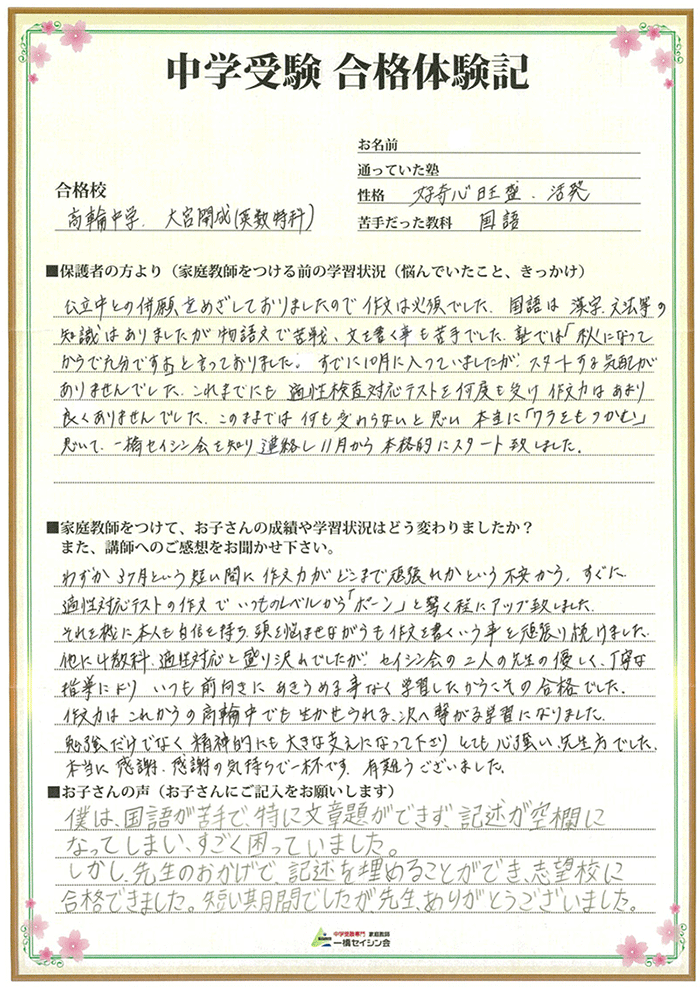 中学受験 合格体験記
お名前
通っていた塾
合格校
性格 好奇心旺盛・活発
高輪中学、大宮開成(英数特科)
苦手だった教科 国語
■保護者の方より（家庭教師をつける前の学習状況（悩んでいたこと、きっかけ）
公立中との併願をめざしておりましたので作文は必須でした。国語は漢字、文法等の
知識はありましたが物語文で苦戦、文を書く事も苦手でした。塾では「秋になって
からで充分ですよ」と言っておりました。すでに10月に入っていましたが、スタートする気配が
ありませんでした。これまでにも適性検査対応テストを何度も受け作文力はあまり
良くありませんでした。このままでは何も変わらないと思い本当に「ワラをもつかむ」
思いで、一橋セイシン会を知り連絡し11月から本格的にスタート致しました。
■家庭教師をつけて、お子さんの成績や学習状況はどう変わりましたか？
また、講師へのご感想をお聞かせ下さい。
わずか3ヶ月という短い間に作文力がどこまで頑張れるかという不安から、すぐに
適性対応テストの作文でいつものレベルから「ボーン」と驚く程にアップ致しました。
それを機に本人も自信を持ち、頭を悩ませながらも作文を書くいう事を頑張り続けました。
他に4教科、適性対応と盛り沢れでしたが、セイシン会の二人の先生の優しく、丁寧な
指導により いつも前向きに あきらめる事なく学習したからこその合格でした。
作文力は これからの高輪中でも生かせられる、次へ繋がる学習になりました。
勉強だけでなく精神的にも大きな支えになって下さり とても心強い、先生方でした。
本当に感謝、感謝の気持ちで一杯です。有難うございました。
■お子さんの声（お子さんにご記入をお願いします）
僕は、国語が苦手で、特に文章題ができず、記述が空欄に
なってしまい、すごく困っていました。
しかし、先生のおかげで、記述を埋めることができ、志望校に
合格できました。短い期間でしたが、先生、ありがとうございました。
中学受験専門 家庭教師
一橋セイシン会